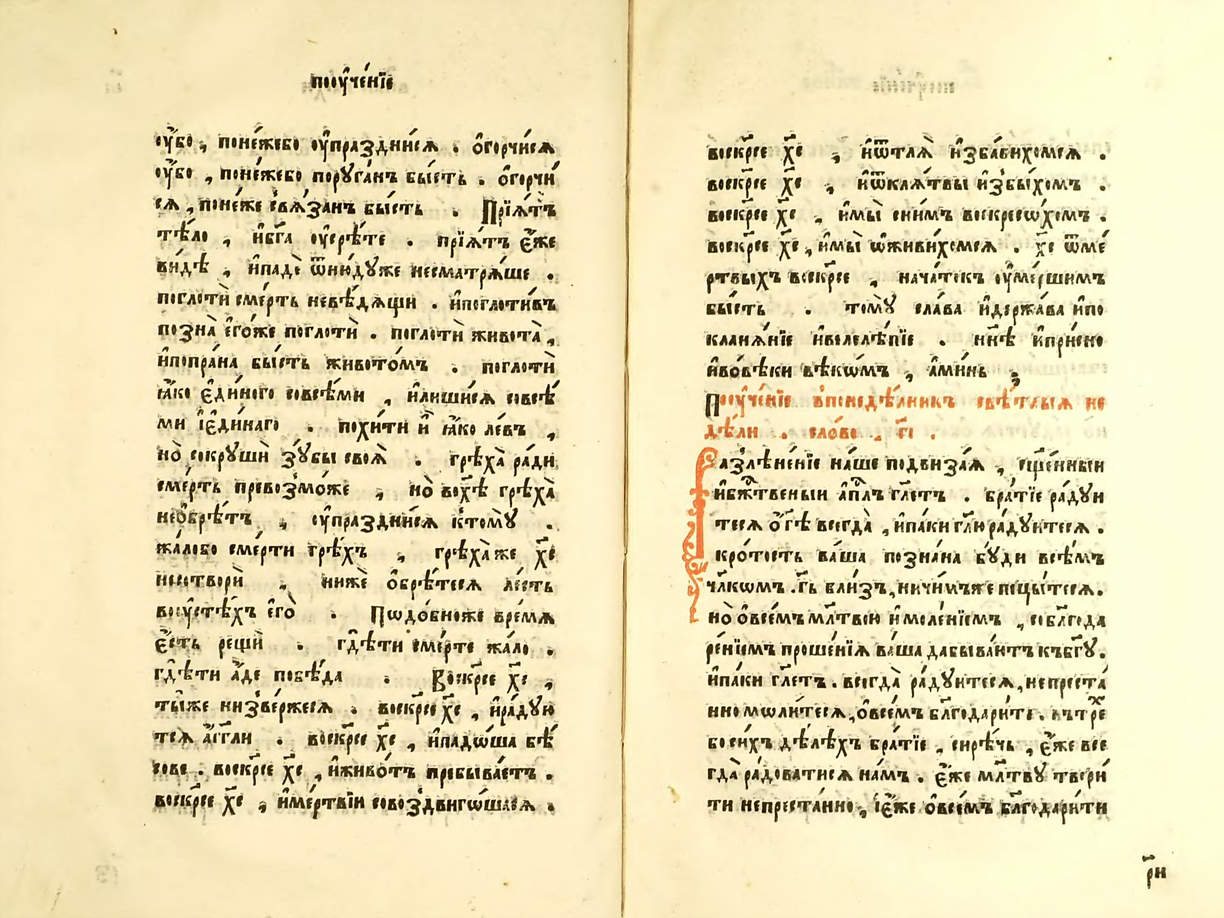 поꙋче́нїе
ᲂу҆́бо , поне́жебо ᲂу҆праздни́сѧ . ѻ҆горчи́сѧ
ᲂу҆́бо , поне́жебо порꙋ́ганъ бы́сть . ѻ҆горчи́
сѧ , поне́же свѧ́занъ бы́сть . Прїѧ́тъ
тѣ́ло , и҆бг҃а ᲂу҆срѣ́те . прїѧ́тъ є҆́же
ви́дѣ , и҆падѐ ѿню́дꙋже несматрѧ́ше .
поглотѝ сме́рть невѣ́дѧщи . и҆поглоти́въ
позна̀ є҆го́же поглотѝ . поглотѝ живота̀ ,
и҆попра́на бы́сть живото́мъ . поглотѝ
ꙗ҆́ко є҆ди́ного совсѣ́ми , и҆лиши́сѧ совсѣ́
ми і҆є҆ди́наго . похи́ти и҆̀ ꙗ҆́ко ле́въ ,
но̀ сокрꙋшѝ зꙋ́бы своѧ̀ . грѣха̀ ра́ди
сме́рть превозмо́же , но̀ вохѣ̀ грѣха̀
неѡ҆брѣ́тъ , ᲂу҆праздни́сѧ ктомꙋ̀ .
жа́лобо сме́рти грѣ́хъ , грѣха̀ же х҃е
несотворѝ , нижѐ ѻ҆брѣ́тесѧ ле́сть
воᲂу҆стѣ́хъ є҆гѡ̀ . Пѡдо́бноже вре́мѧ
є҆́сть рещѝ . гдѣ́ти сме́рте жа́ло .
гдѣ́ти а҆́де побѣ́да . Воскр҃се х҃е ,
ты́же низве́ржесѧ . воскр҃се х҃е , и҆ра́дꙋю
тсѧ а҆́гг҃ли . воскр҃се х҃е , и҆падѡ́ша бѣ́
сове . воскр҃се х҃е , и҆живо́тъ пребыва́етъ .
воскр҃се х҃е , и҆ме́ртвїи совоздвиго́шасѧ .
воскр҃се х҃е , и҆ѿтлѧ̀ и҆зба́вихомсѧ .
воскр҃се х҃е , и҆ѿклѧ́твы и҆збы́хомъ .
воскр҃се х҃е , и҆мы̀ сни́мъ воскресо́хомъ .
воскр҃се х҃е , и҆мы̀ ѡ҆живи́хомсѧ . х҃е ѿме́
ртвыхъ воскр҃се , нача́токъ ᲂу҆ме́ршимъ
бы́сть . томꙋ̀ сла́ва и҆держа́ва и҆по
кланѧ́нїе и҆велелѣ́пїе . нн҃ѣ и҆при́сно
и҆вовѣ́ки вѣкѡ́мъ , а҆ми́нь ;
Поꙋче́нїе впонедѣ́лникъ свѣ́тлыѧ не
дѣ́ли . сло́во . г҃і .
Разлѣне́нїе на́ше подвиза́ѧ , сщ҃е́нныи
и҆бж҃твеныи а҆пл҃ъ гл҃етъ . бра́тїе ра́дꙋи
тесѧ ѻ҆г҃ѣ всегда̀ , и҆па́ки гл҃ю ра́дꙋитесѧ .
кро́тость ва́ша позна́на бꙋ́ди всѣ́мъ
чл҃кѡмъ . г҃ь бли́зъ , ничи́мъже пецы́тесѧ .
но̀ ѻ҆всемъ мл҃твою и҆моле́нїемъ , собл҃года
ре́нїемъ проше́нїѧ ва́ша дабыва́ютъ къбг҃ꙋ .
и҆па́ки гл҃етъ . всегда̀ ра́дꙋитесѧ , непреста́
нно мѡли́тесѧ , ѻ҆все́мъ бл҃годари́те . вът҃ре
босихъ дѣ́лѣхъ бра́тїе , си́рѣчь , є҆́же все
гда̀ ра́доватисѧ на́мъ . є҆́же мл҃твꙋ твори́
ти непреста́нно , і҆є҆́же ѻ҆все́мъ бл҃годари́ти
р҃и